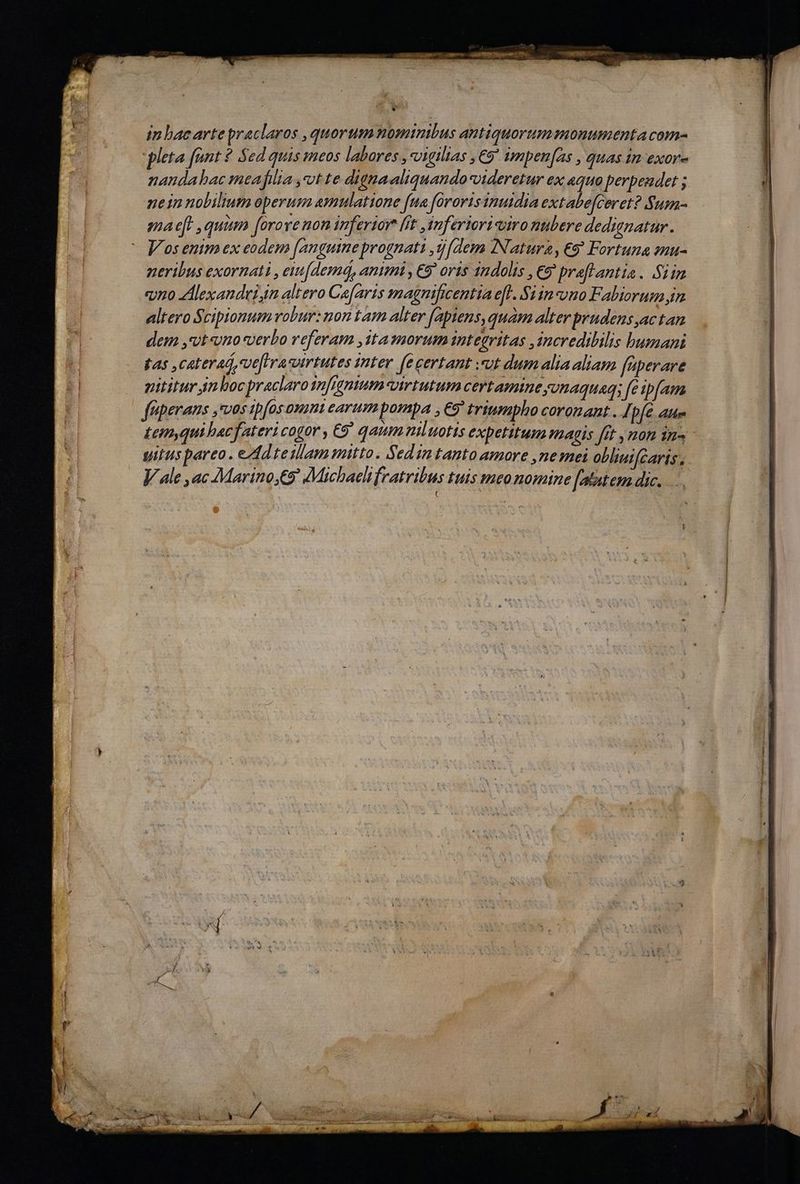 in hac arte præclaros, quorum nominibus antiquorum monumenta com-
pleta ſunt? Sed quis meos labores, vigilias, & impenſas, quas in exor-
nanda hac mea filia, vt te digna aliquando videretur ex æquo perpendet;
ne in nobilium operum æmulatione ſua ſororis inuidia extabeſceret? Sum-
ma eſt, quùm ſorore non inferior ſit, inferiori viro nubere dedignatur.
Vos enim ex eodem ſanguine prognati, ijſdem Naturæ, & Fortunæ mu-
neribus exornati, eiuſdemq́; animi, & oris indolis, & præſtantia. Si in
vno Alexandri, in altero Cæſaris magnificentia eſt. Si in vno Fabiorum, in
altero Scipionum robur: non tam alter ſapiens, quàm alter prudens, ac tan
dem, vt vno verbo referam, ita morum integritas, incredibilis humani
tas, cæteræq́; veſtræ virtutes inter ſe certant, vt dum alia aliam ſuperare
nititur, in hoc præclaro inſignium virtutum certamine, vnaquæq; ſe ipſam
ſuperans, vos ipſos omni earum pompa, & triumpho coronant. Ipſe au-
tem, qui hæc fateri cogor, & qaùm nil uotis expetitum magis ſit, non in-
uitus pareo. Ad te illam mitto. Sed in tanto amore, ne mei obliuiſcaris.
Vale, ac Marino, & Michaeli fratribus tuis meo nomine ſalutem dic.